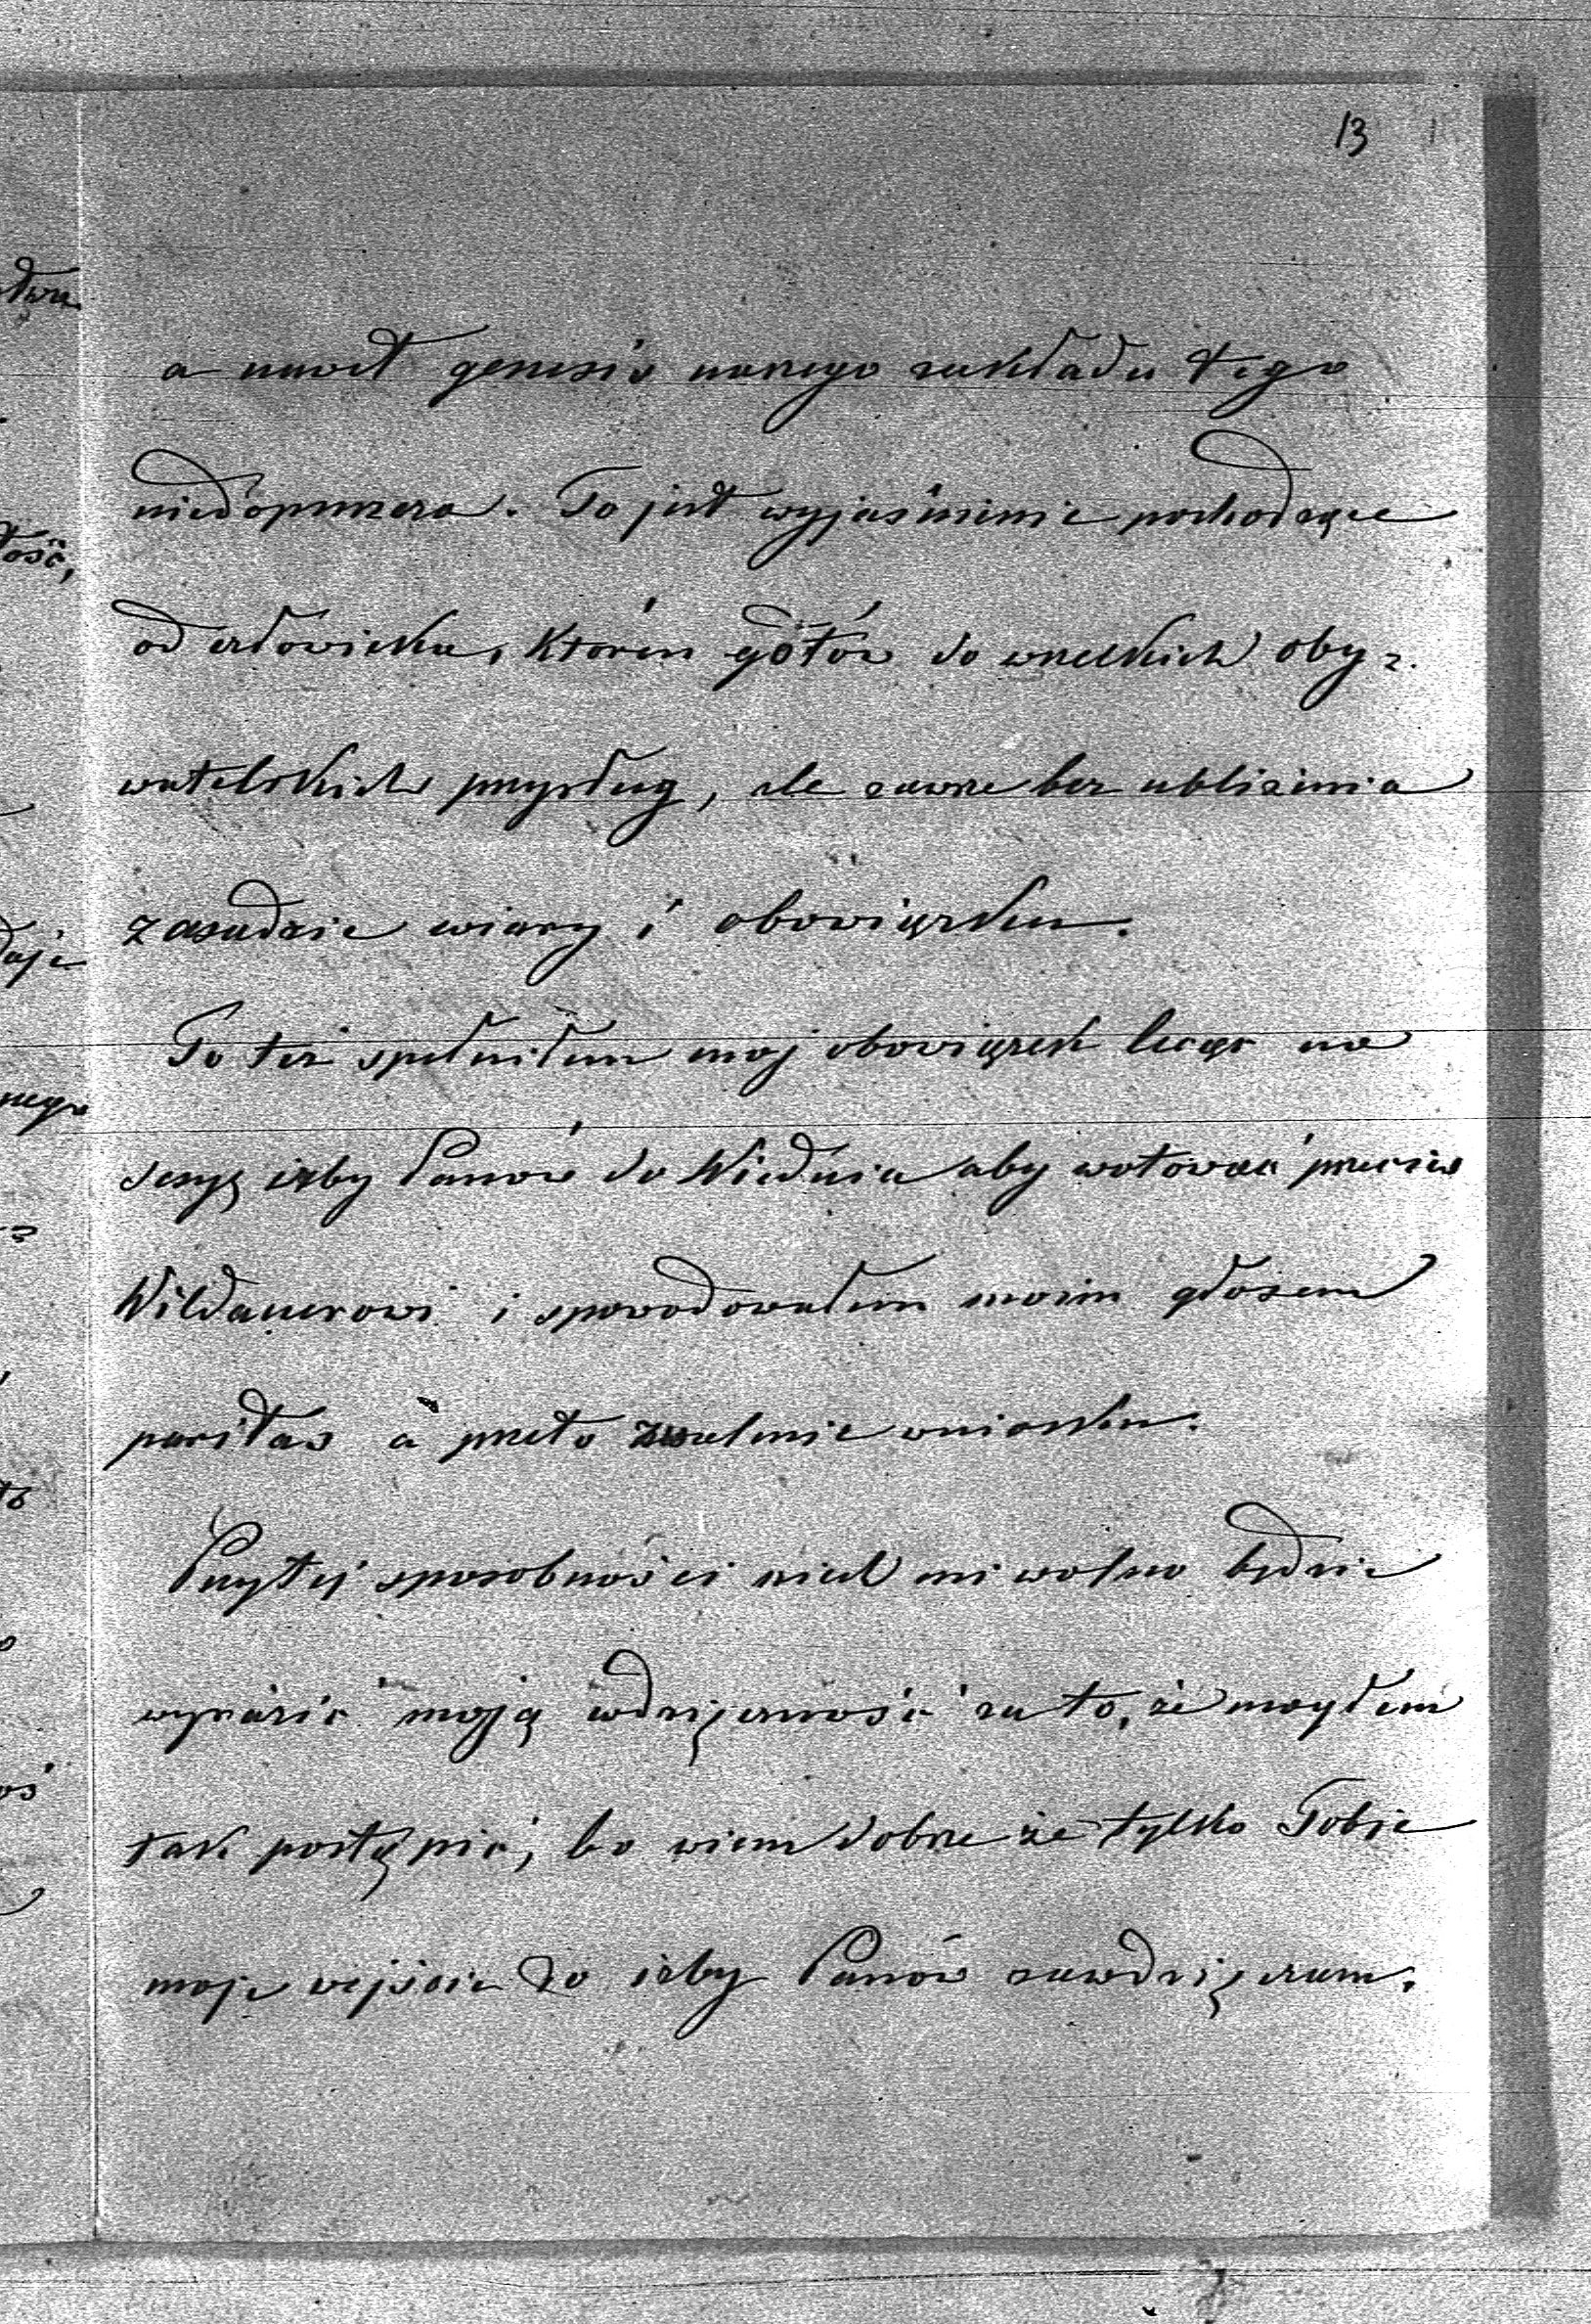 13
a nawet genesis naszego zakładu tego
niedopuszcza. To jest wyjaśnienie pochodzące
od człowieka, któren gotów do wszelkich oby-
watelskich przysług, ale zawsze bez ubliżenia
zasadzie wiary i obowiązku.
To też spełniłem moj obowiązek lecąc na
sesyę izby Panów do Wiednia aby wotować przeciw
Wildauerowi i spowodowałem moim głosem
paritas a przeto zwalenie wniosku.
Przytej sposobności niech mi wolno będzie
wyrazić moją wdzięczność za to, że mogłem
tak postąpić, bo wiem dobrze że tylko Tobie
moje wejście do izby Panów zawdzięczam.